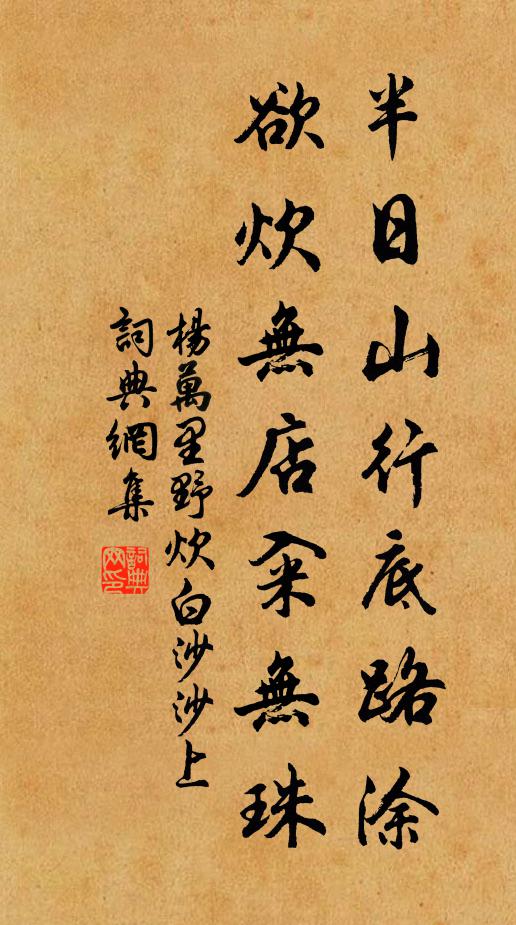 半日山行底路涂
欲炊無店籴無珠
楊萬里野炊白沙沙上
詞典網集
詞典网印